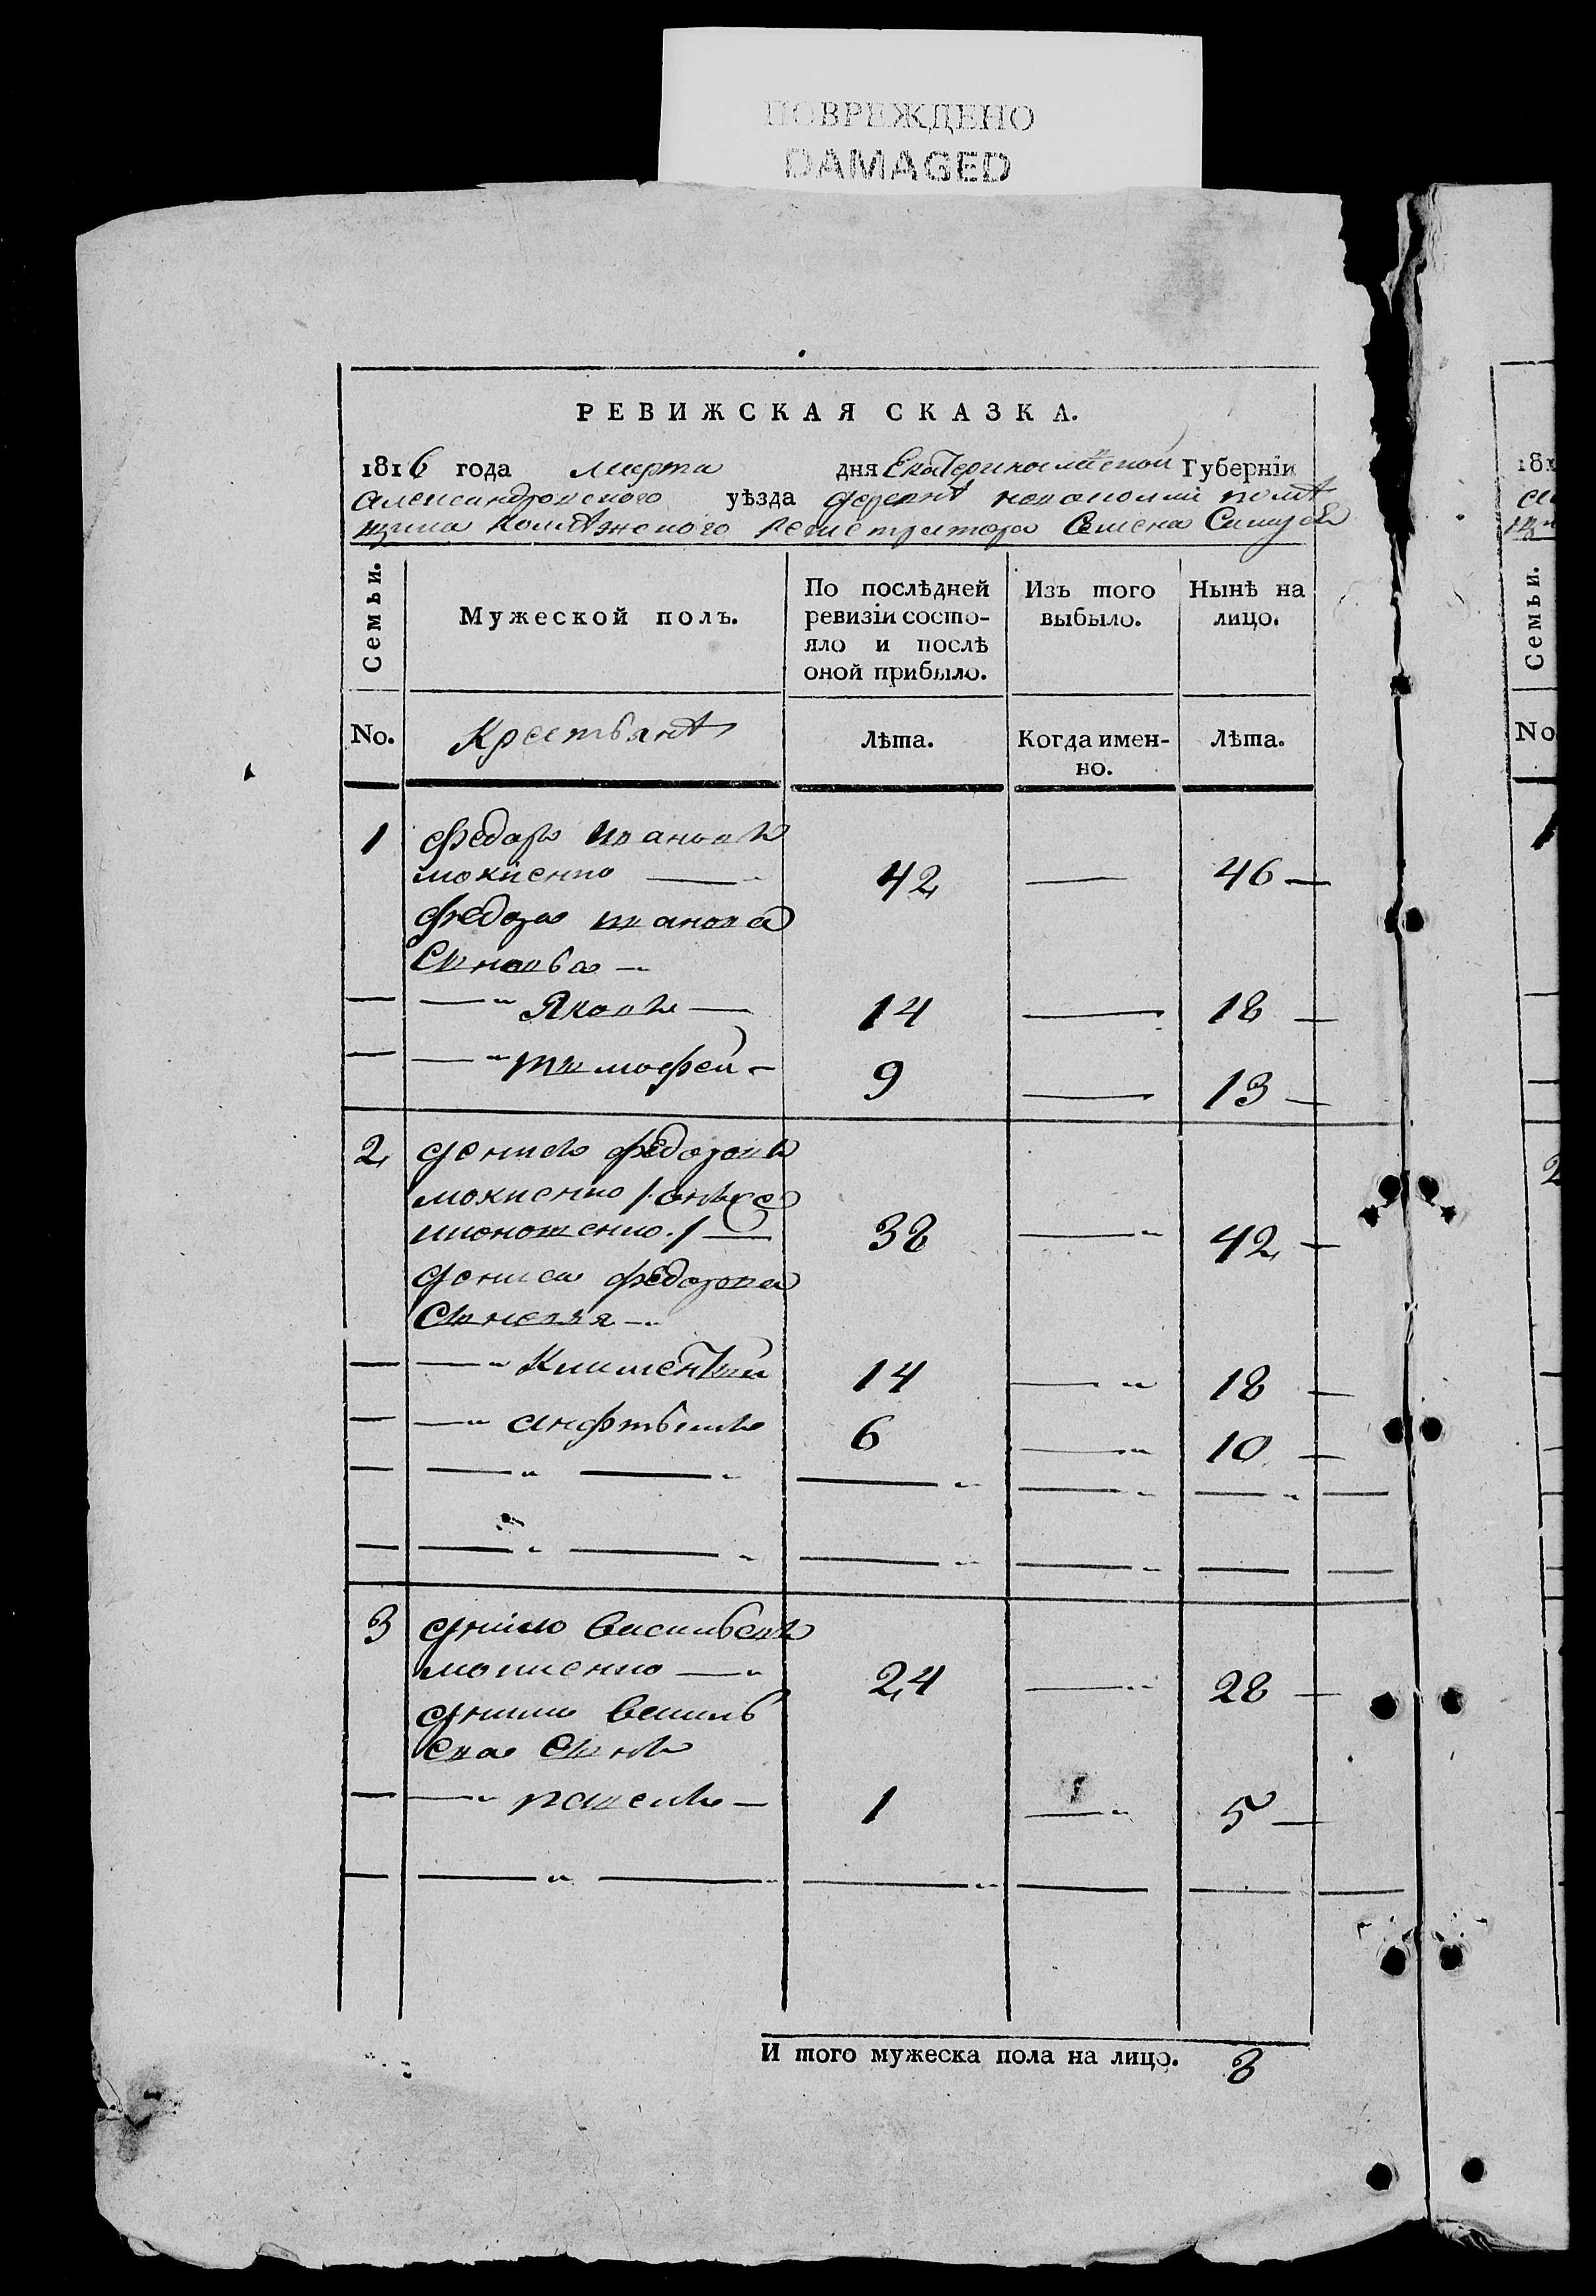 ПОВРЕЖДЕНО
DAMAGED
РЕВИЖСКАЯ СКАЗКА.
1816 года марта дня Екатеринославской Губерніи
Александровского уѣзда деревнѣ помѣ
щика Колѣжского регистратора Семена
Семьи.
Мужеской полъ.
По послѣдней
ревизіи состо-
яло и послѣ
оной прибыло.
Изъ того
выбыло.
Нынѣ на
лицо.
No. Крестьянѣ Лѣта. Когда имен-
но. Лѣта.
1 федоръ ивановъ
мокиенко — 42 — 46 —
федора иванова
Сыновья —
— Яковъ — 14 — 18 —
— тимофей — 9 — 13 —
2 денисъ федоровъ
мокиенко /: онъ же
./ — 38 — 42 —
дениса федорова
Сыновья —
— Климентий 14 — 18 —
— 6 — 10 —
3 данило васильевъ
мокиенко — 24 — 28 —
данила василь
ева Сынъ
— павелъ — 1 — 5 —
И того мужеска пола на лицо. 8
181
Семьи.
No
1
2